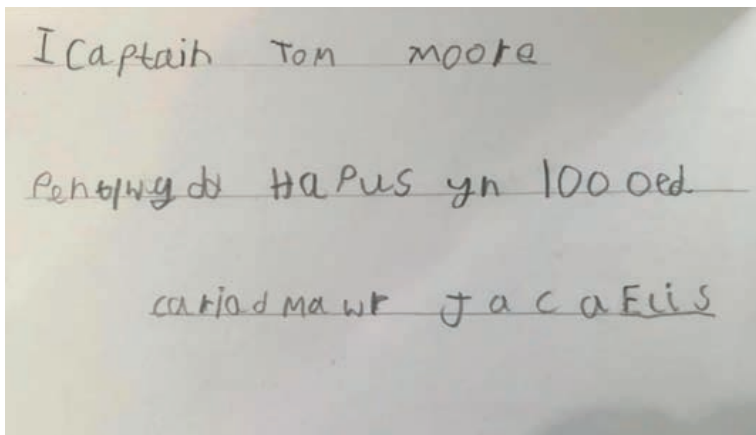 I Captain Tom moore
Penblwydd HaPus yn 100 oed
cariad mawr Jac a Elis